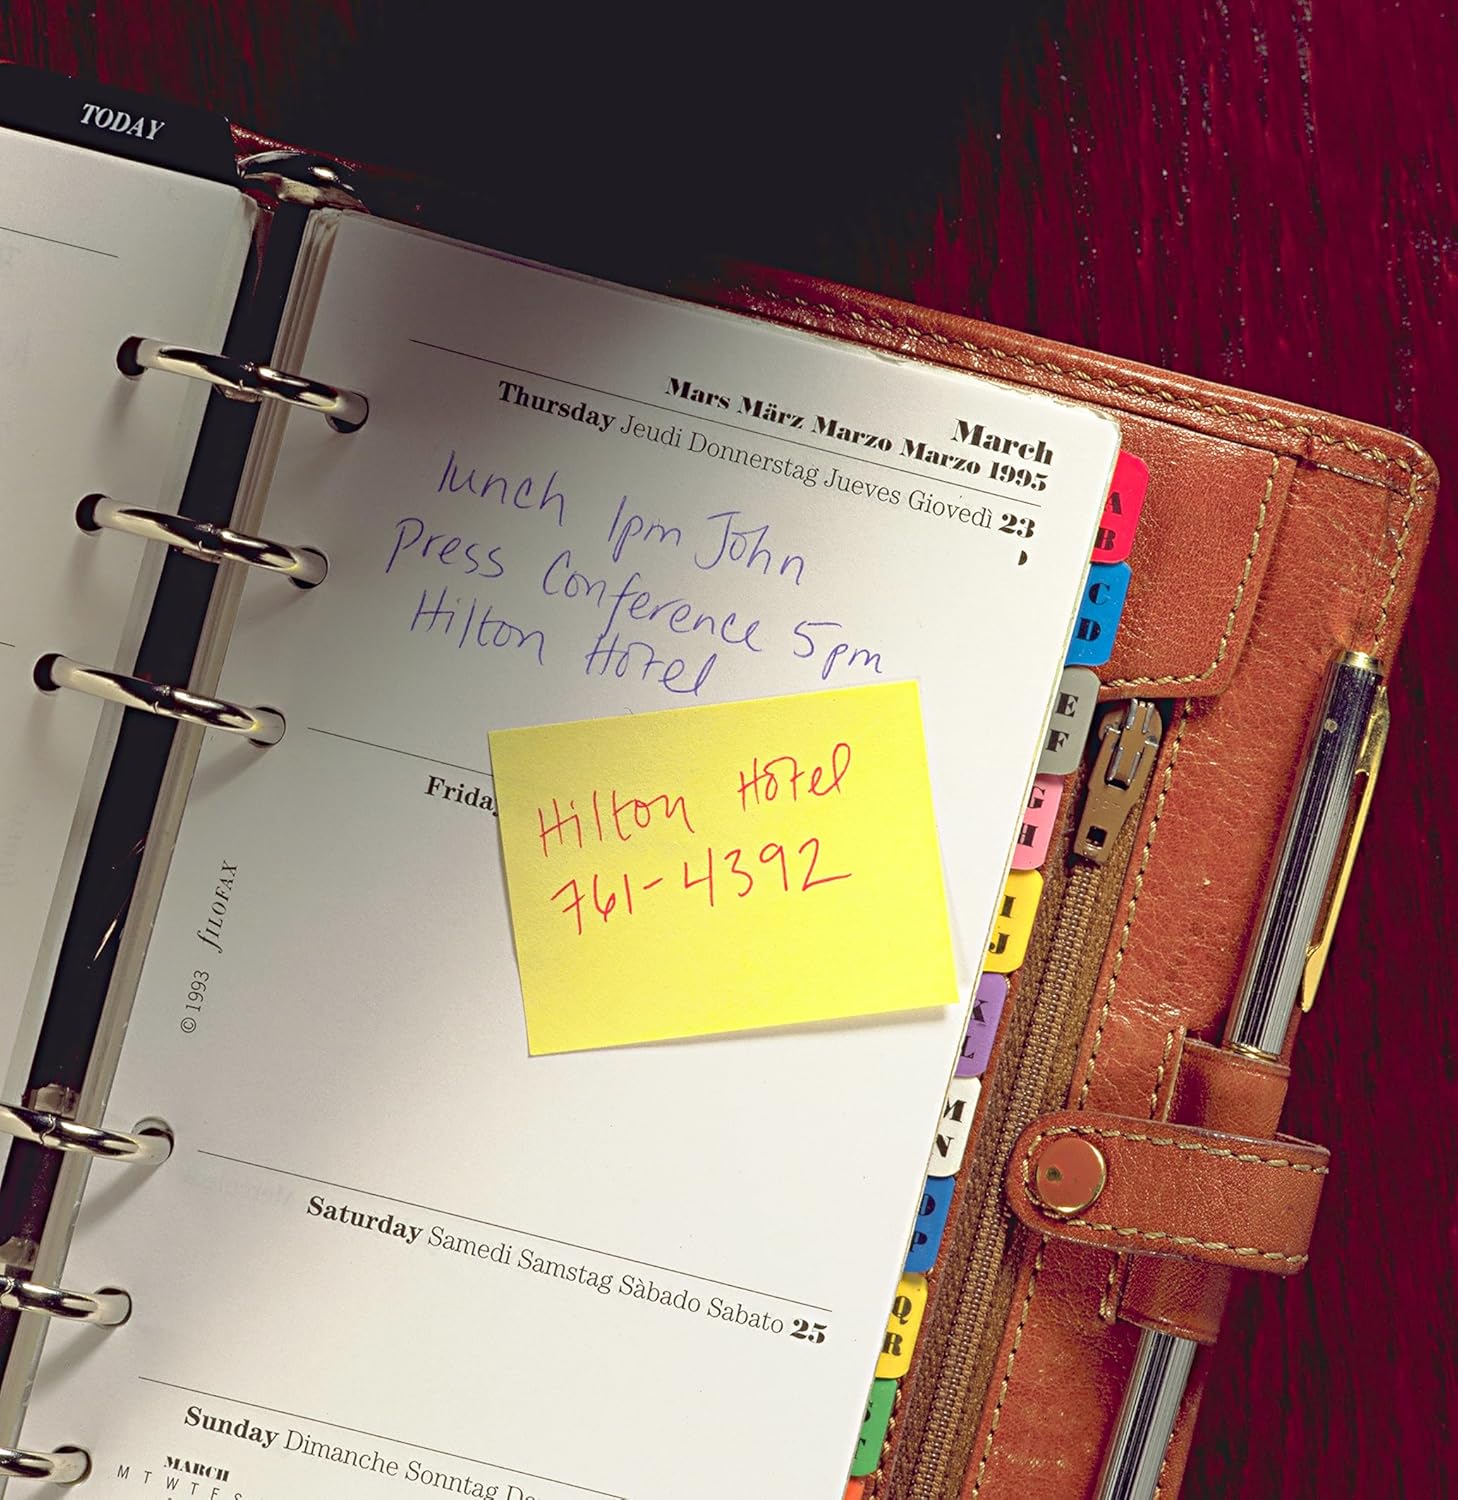 TODAY
March
Mars März Marzo Marzo 1995
Thursday Jeudi Donnerstag Jueves Giovedì 23
lunch 1pm John
Press Conference 5pm
Hilton Hotel
Hilton Hotel
761-4392
© 1993 FILOFAX
Saturday Samedi Samstag Sàbado Sabato 25
Sunday Dimanche Sonntag
MARCH
M T W T F S
A
B
C
D
E
F
G
H
I
J
K
L
M
N
O
P
Q
R
S
T